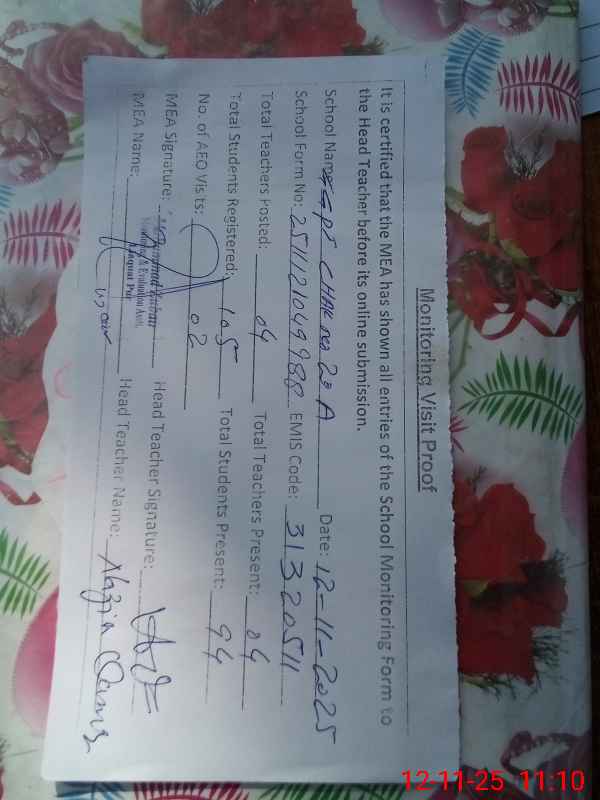 Monitoring Visit Proof
It is certified that the MEA has shown all entries of the School Monitoring Form to
the Head Teacher before its online submission.
School Name: GPS CHAK no 20 A Date: 12-11-2025
School Form No: EMIS Code: 31320511
Total Teachers Posted: 04 Total Teachers Present: 04
Total Students Registered: 105 Total Students Present: 94
No. of AEO Visits: 02
MEA Signature: Head Teacher Signature:
Monitoring & Evaluation Asstt.
MEA Name: Head Teacher Name:
12-11-25 11:10